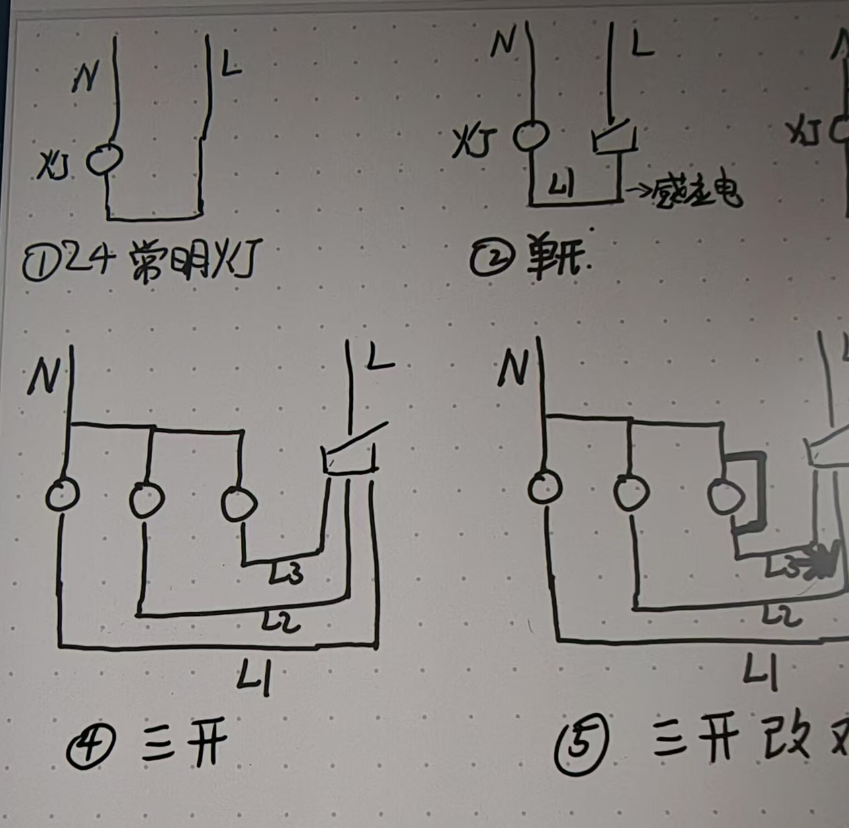 N L
灯
①24常明灯
N L
灯
L1 →感应电
②单开
灯
N L
L3
L2
L1
④三开
N
L3
L2
L1
⑤三开改